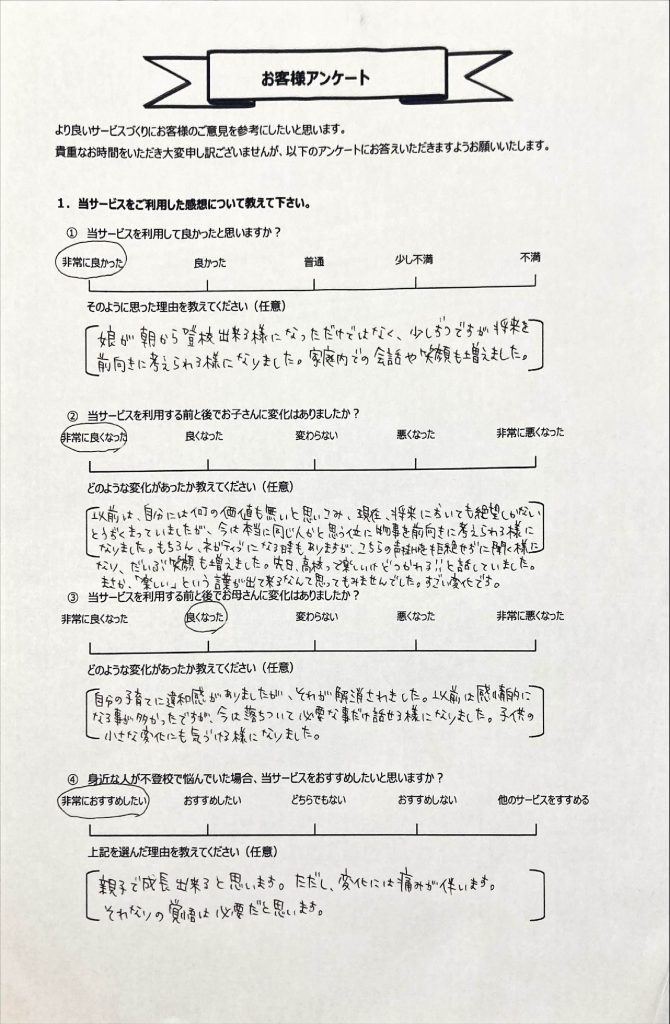 お客様アンケート
より良いサービスづくりにお客様のご意見を参考にしたいと思います。
貴重なお時間をいただき大変申し訳ございませんが、以下のアンケートにお答えいただきますようお願いいたします。
1. 当サービスをご利用した感想について教えて下さい。
① 当サービスを利用して良かったと思いますか？
非常に良かった 良かった 普通 少し不満 不満
そのように思った理由を教えてください（任意）
娘が朝から登校出来る様になっただけではなく、少しずつですが将来を
前向きに考えられる様になりました。家庭内での会話や笑顔も増えました。
② 当サービスを利用する前と後でお子さんに変化はありましたか？
非常に良くなった 良くなった 変わらない 悪くなった 非常に悪くなった
どのような変化があったか教えてください（任意）
以前は、自分には何の価値も無いと思いこみ、現在、将来においても絶望しかない
とうずくまっていましたが、今は本当に同じ人かと思う位に物事を前向きに考えられる様に
なりました。もちろん、ネガティブになる時もありますが、こちらの声掛けを拒絶せずに聞く様に
なり、だいぶ笑顔も増えました。先日、高校って楽しいけどつかれる!!と話していました。
まさか、「楽しい」という言葉が出て来るなんて思ってもみませんでした。すごい変化です。
③ 当サービスを利用する前と後でお母さんに変化はありましたか？
非常に良くなった 良くなった 変わらない 悪くなった 非常に悪くなった
どのような変化があったか教えてください（任意）
自分の子育てに違和感がありましたが、それが解消されました。以前は感情的に
なる事が多かったですが、今は落ちついて必要な事だけ話せる様になりました。子供の
小さな変化にも気づける様になりました。
④ 身近な人が不登校で悩んでいた場合、当サービスをおすすめしたいと思いますか？
非常におすすめしたい おすすめしたい どちらでもない おすすめしない 他のサービスをすすめる
上記を選んだ理由を教えてください（任意）
親子で成長出来ると思います。ただし、変化には痛みが伴います。
それなりの覚悟は必要だと思います。